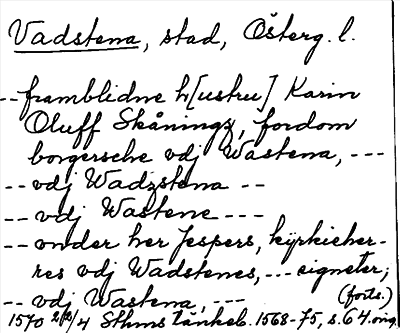 Vadstena, stad, Österg. l.
-- framblidne h[ustru] Karin
Oluff Skånings, fordom
borgersche vdj Wastena, ---
-- vdj Wadzstena --
-- vdj Wastene ---
-- vnder her Jespers, kÿrkieher-
res vdj Wadstenes, --- signeter;
-- vdj Wastena, --- (forts.)
1570 2/4 Sthms tänkeb. 1568-75, s. 64. orig.